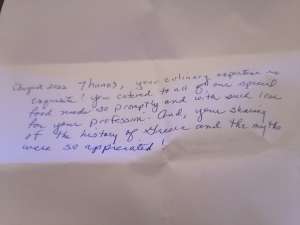 August 2022 Thanks, your culinary expertise is
exquisite! You catered to all of our special
food needs so promptly and with such love
for your profession. And, your sharing
of the history of Greece and the myths
were so appreciated!